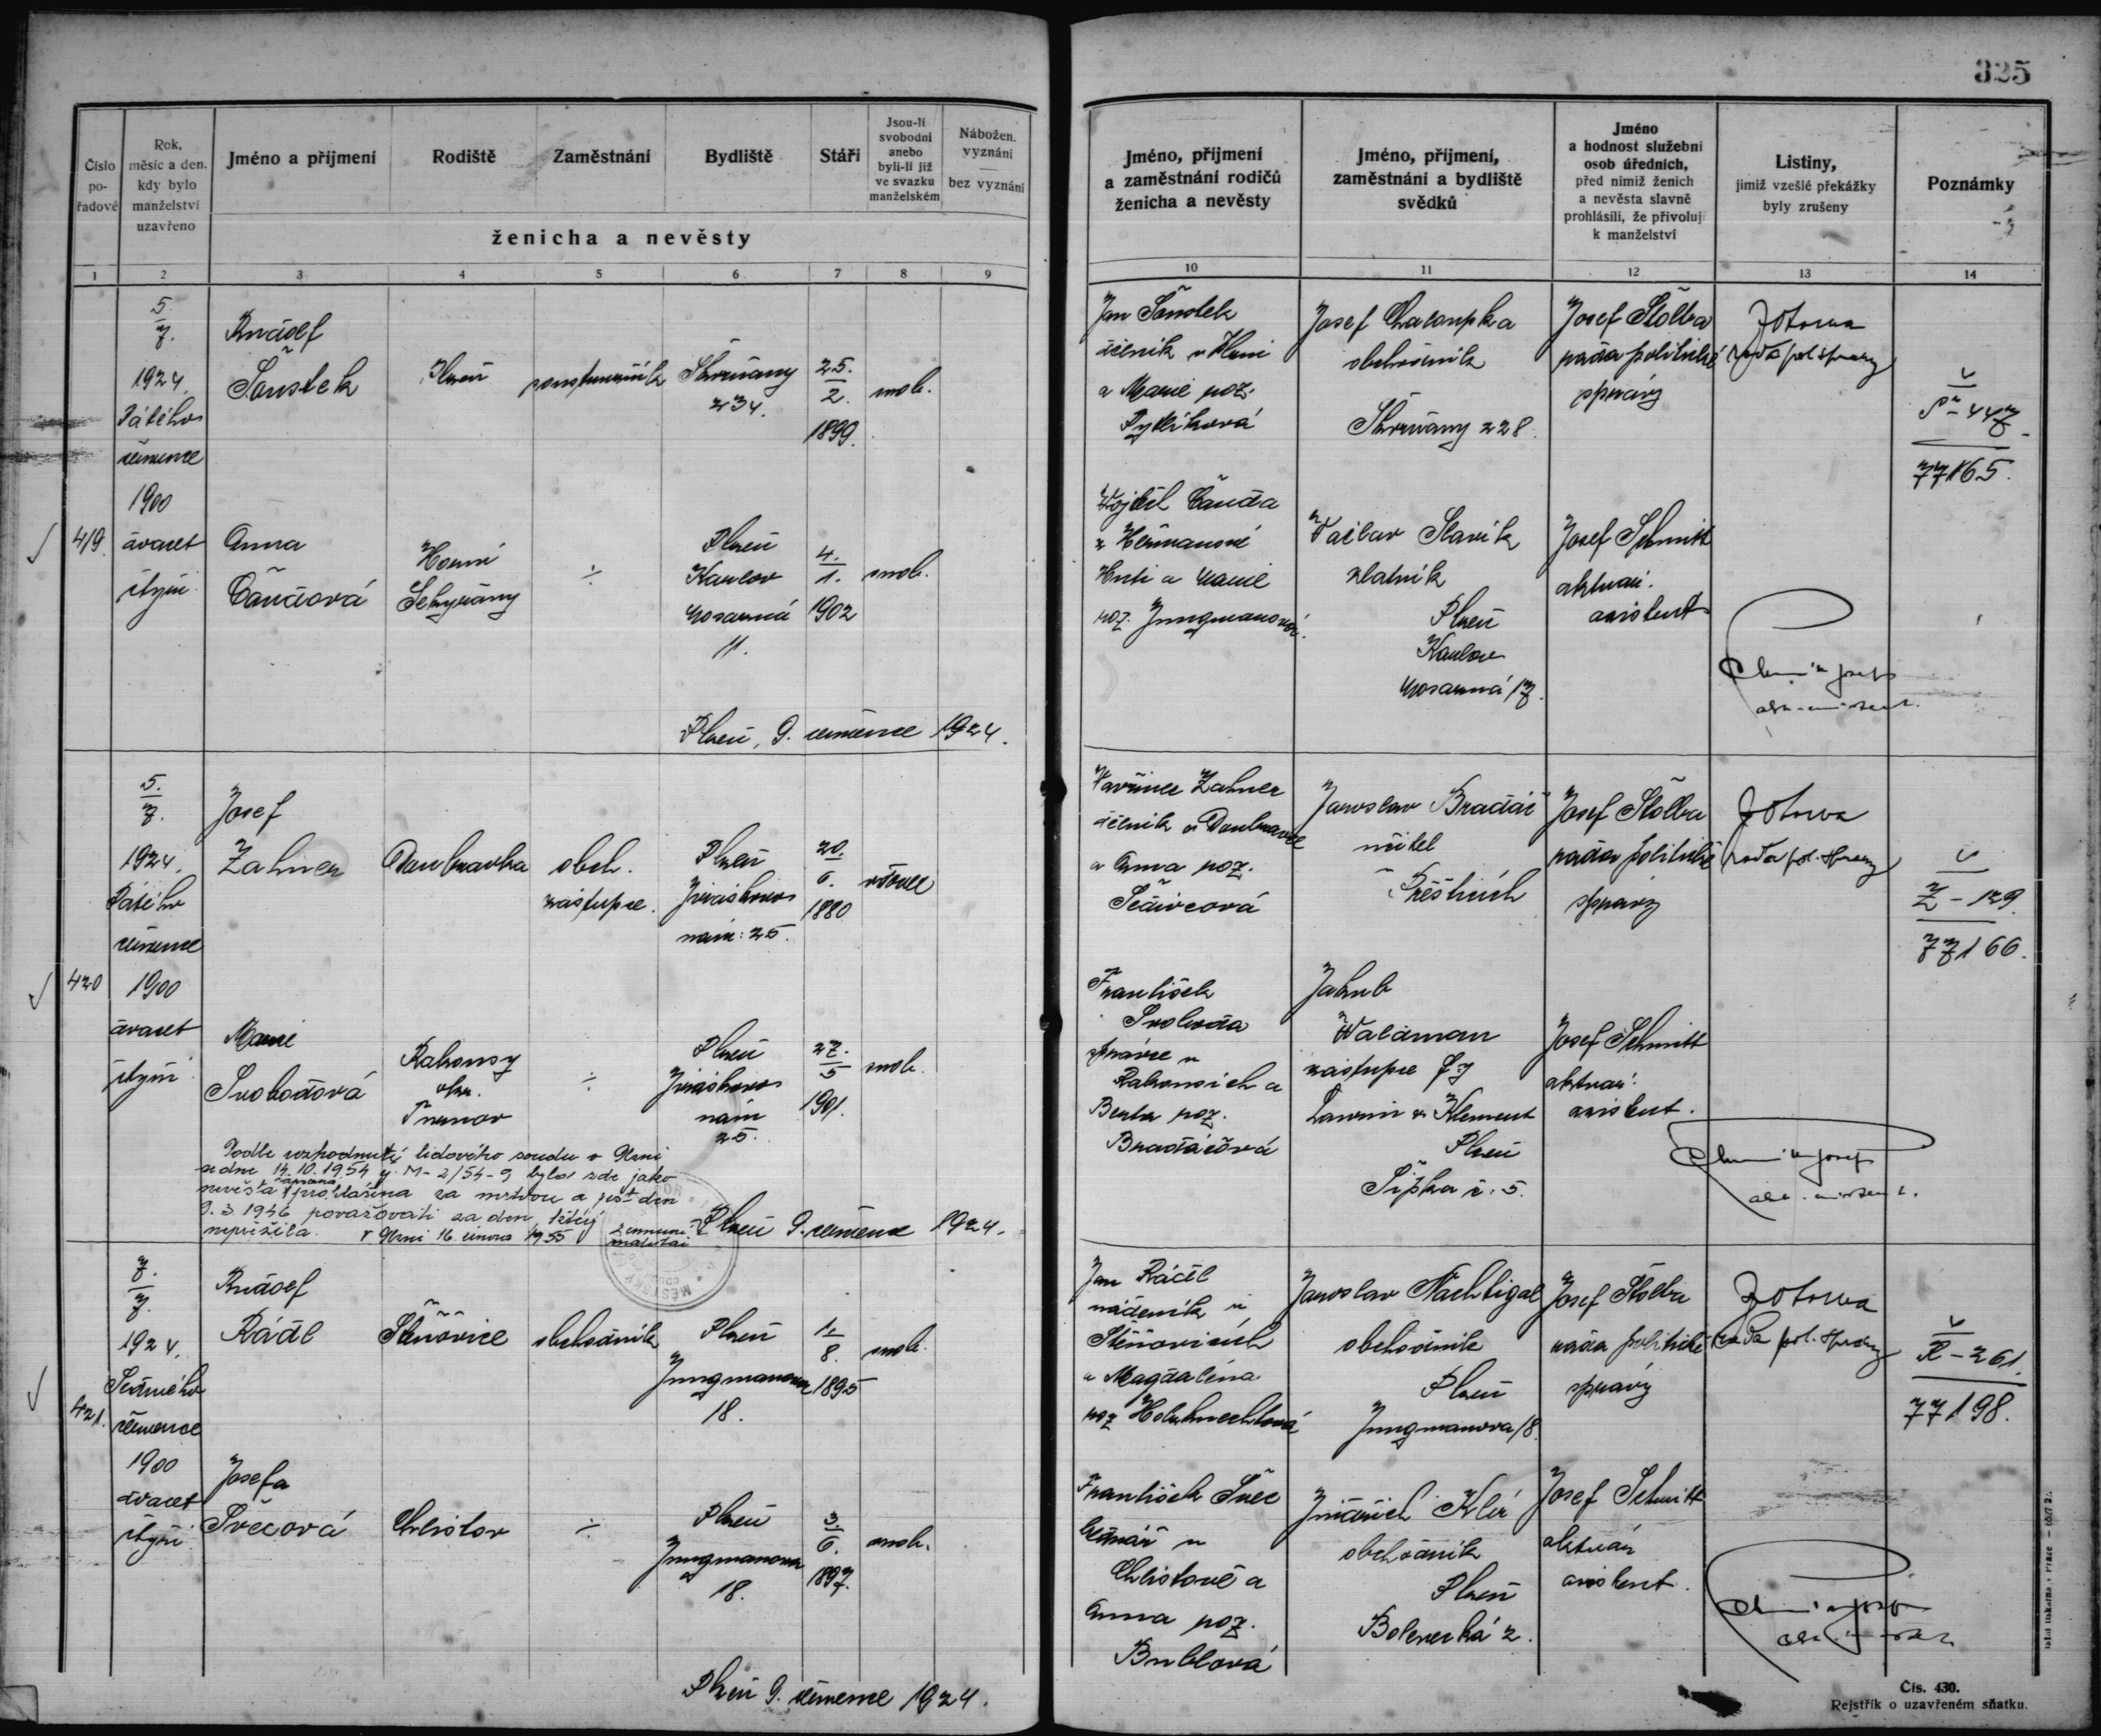 325
Číslo
po-
řadové
Rok,
měsíc a den,
kdy bylo
manželství
uzavřeno
Jméno a příjmení
Rodiště
Zaměstnání
Bydliště
Stáří
Jsou-li
svobodni
anebo
byli-li již
ve svazku
manželském
Nábožen.
vyznání
bez vyznání
ženicha a nevěsty
1 2 3 4 5 6 7 8 9
Jméno, příjmení
a zaměstnání rodičů
ženicha a nevěsty
Jméno, příjmení,
zaměstnání a bydliště
svědků
Jméno
a hodnost služební
osob úředních,
před nimiž ženich
a nevěsta slavně
prohlásili, že přivolují
k manželství
Listiny,
jimiž vzešlé překážky
byly zrušeny
Poznámky
10 11 12 13 14
419
5.
7.
1924.
Pátého
července
1900
dvacet
čtyři
Rudolf
Šoustek
Plzeň
Skvrňany
234.
25.
2.
1899.
svob.
Anna
Čandová
Horní
Sekyřany
÷
Plzeň
Karlov
11.
4.
1.
1902
svob.
Plzeň, 9. července 1924.
Jan Šoustek
dělník v Plzni
a Marie roz.
Pytlíková
Josef Chaloupka
obchodník
Skvrňany 228.
Josef Štolba
rada politické
správy
rada pol. správy
Š - 447
77165.
Vojtěch Čanda
z Heřmanové
Huti a Marie
roz. Jungmanová.
Václav Slavík
zlatník
Plzeň
Karlov
17.
Josef Schmitt
aktuár.
asistent
420
5.
7.
1924.
Pátého
července
1900
dvacet
čtyři
Josef
Zahner
Doubravka
obch.
zástupce.
Plzeň
Jiráskovo
nám: 25.
20.
6.
1880
vdovec
Marie
Svobodová
Rakousy
okr.
Turnov
÷
Plzeň
Jiráskovo
nám
25.
27.
5
1901.
svob.
Podle rozhodnutí lidového soudu v Plzni
ze dne 14.10.1954 čj. M-2/54-9 byla zde jako
nevěsta zapsaná prohlášena za mrtvou a jest den
9.3.1946 považovati za den, který
nepřežila. V Plzni 16. února 1955
Plzeň 9. července 1924.
Vavřinec Zahner
dělník v Doubravce
a Anna roz.
Jaroslav Bradáč
učitel
Přeštice
Josef Štolba
rada politické
správy
rada pol. správy
Z - 129.
77166.
František
Svoboda
správce v
Rakousích a
Berta roz.
Bradáčová
Jakub
Waldman
zástupce fy
Laurin & Klement
Plzeň
Šipka č: 5.
Josef Schmitt
aktuár.
asistent.
421.
7.
7.
1924.
Sedmého
července
1900
dvacet
čtyři
Rudolf
Rádl
Štěnovice
obchodník
Plzeň
Jungmanova
18.
1.
8.
1895
svob.
Josefa
Švecová
Chlistov
÷
Plzeň
Jungmanova
18.
3.
6.
1897.
svob.
Plzeň 9. července 1924.
Jan Rádl
nádeník v
Štěnovicích
a Magdaléna
roz Holuhnechtová
Jaroslav Nachtigal
obchodník
Plzeň
Jungmanova 18.
Josef Štolba
rada politické
správy
rada pol. správy
R - 261.
77198.
František Švec
bednář v
Chlistově a
Anna roz.
Bublová
Jindřich Klír
obchodník
Plzeň
Bolevecká 2.
Josef Schmitt
aktuár
asistent.
Čís. 430.
Rejstřík o uzavřeném sňatku.